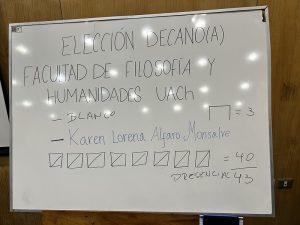 ELECCIÓN DECANO(A)
FACULTAD DE FILOSOFÍA Y
HUMANIDADES UACh
- BLANCO = 3
- Karen Lorena Alfaro Monsalve
= 40
PRESENCIAL 43